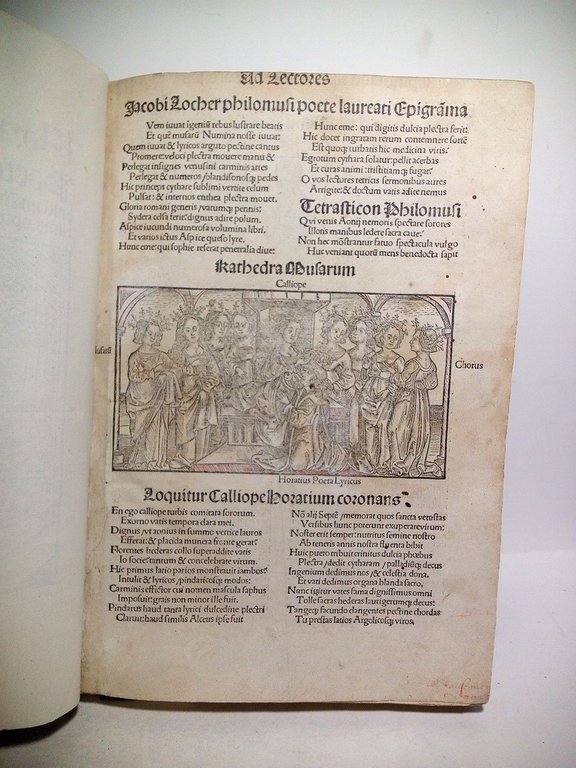 Ad Lectores
Jacobi Locher philomusi poete laureati Epigrāma
Vem iuuat īgeniū rebus lustrare beatis
Et quē musarū Numina nosse iuuat:
Quem iuuat & lyricos arguto pectine cantus
Promere: veloci plectra mouere manu &
Perlegat insignes venusini carminis artes
Perlegat & numeros/blandisonosq; pedes
Hic princeps cythare sublimi vertice celum
Pulsat: & internos enthea plectra mouet.
Gloria romani generis/vatumq; pennis:
Sydera celsa ferit: dignus adire polum.
Aspice iucundi numerosa volumina libri.
Et varios ictus Aspice queso lyre.
Hunc eme: qui sophie reserat penetralia diue:
Hunc eme: qui digitis dulcia plectra ferit:
Hic docet ingratam rerum contemnere sortē
Est quoq; turbatis hic medicina viris.
Egrotum cythara solatur: pellit acerbas
Et curas animi: tristitiamq; fugat.
O vos lectores tetricis sermonibus aures
Arrigite: & doctum vatis adite nemus
Tetrasticon Philomusi
Qui venis Aonij nemoris spectare sorores
Illotis manibus ledere sacra caue.
Non hec mōstrantur fatuo spectacula vulgo
Huc veniant quorū mens benedocta sapit
Kathedra Musarum
Calliope
Chorus
Horatius Poeta Lyricus
Loquitur Calliope Horatium coronans:
En ego calliope turbis comitata sororum.
Exorno vatis tempora clara mei.
Dignus/vt aonios in summo vertice lauros
Efferat: & placida munera fronte gerat:
Florentes hederas collo superaddite vatis
Io socie: tantum & concelebrate virum.
Hic primus latio parios monstrauit iambos:
Intulit & lyricos/pindaricosq; modos:
Carminis effictor cui nomen mascula saphus
Imposuit: grais non minor ille fuit.
Pindarus haud tanta lyrici dulcedine plectri
Claruit: haud similis Alceus ipse fuit
Nō alij Septē/memorat quos sancta vetustas
Versibus hunc poterunt exuperare virum:
Noster erit semper: nutritus semine nostro
Ab teneris annis nostra fluenta bibit
Huic puero tribuit crinitus dulcia phœbus
Plectra/dedit cytharam/palladiūq; decus:
Ingenium dedimus nos/& celestia dona.
Et vati dedimus organa blanda sacro.
Nunc igitur vates fama dignissimus omni
Tolle sacras hederas laurigerumq; decus:
Tangeq; facundo clangentes pectine chordas
Tu prestas latios Argolicosq; viros.